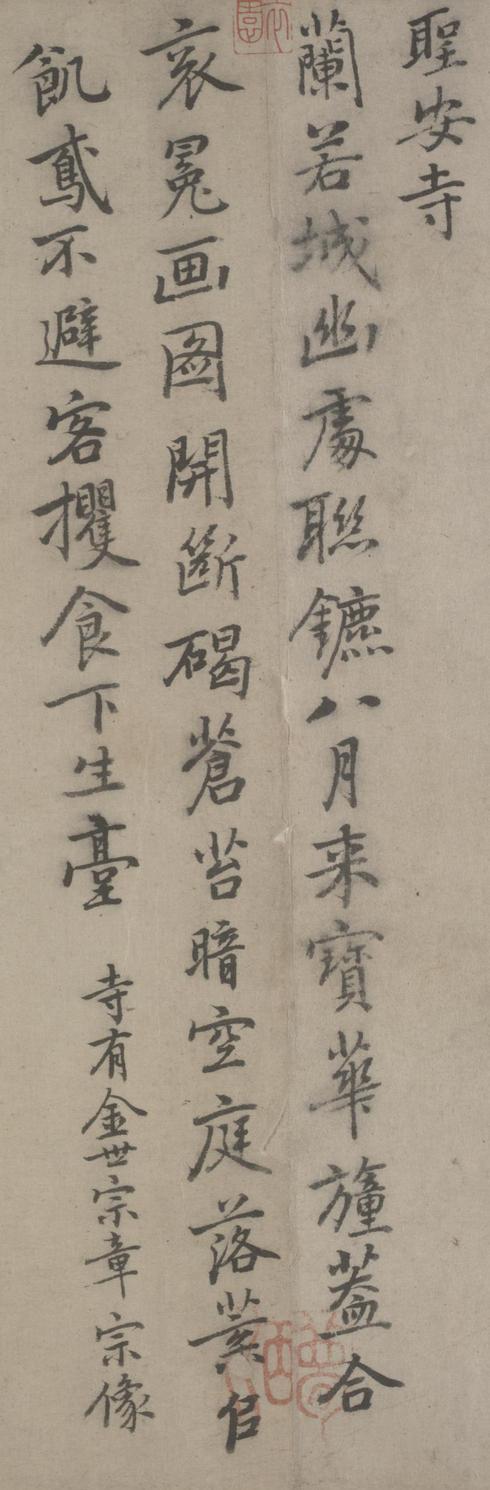 聖安寺
蘭若城幽處聯鑣八月来寶華幢蓋合
衮冕画图開斷碣蒼苔暗空庭落葉𠂤
飢鳶不避客攫食下生臺 寺有金世宗章宗像